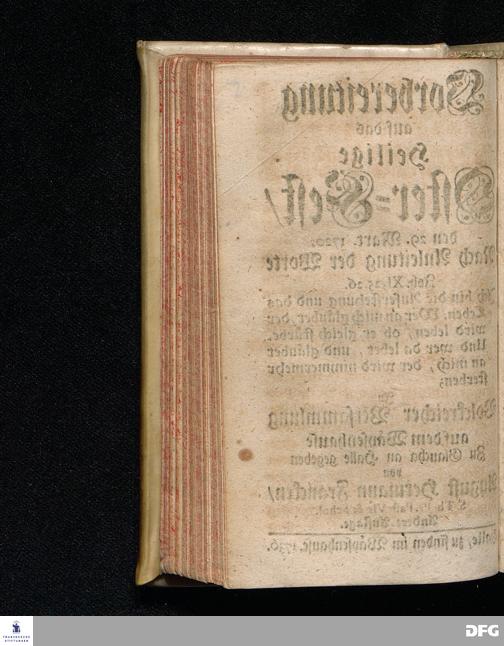 Vorbereitung
auf das
Heilige
Oster-Fest/
den 29. Mart. 1720.
Nach Anleitung der Worte
Joh. XI, 25. 26.
Ich bin die Auferstehung und das
Leben. Wer an mich gläubet, der
wird leben, ob er gleich stürbe.
Und wer da lebet, und gläubet
an mich, der wird nimmermehr
sterben;
Volckreicher Versammlung
auf dem Wäysenhause
zu Glaucha an Halle gegeben
von
August Hermann Francken/
Andere Auflage.
Halle, zu finden im Wäysenhause, 1736.
FRANCKESCHE
STIFTUNGEN
DFG